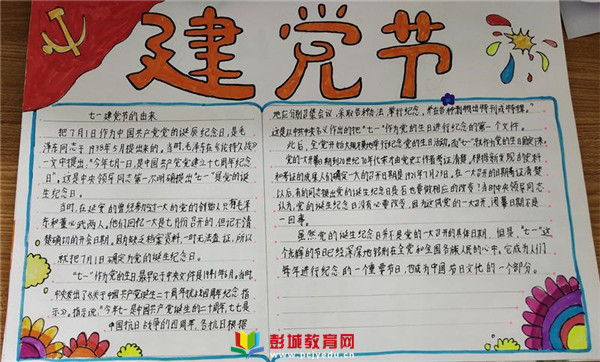 建党节
七一建党节的由来
把7月1日作为中国共产党党的诞辰纪念日,是毛
泽东同志于1938年5月提出来的。当时,毛泽东在《论持久战》
一文中提出:"今年七月一日,是中国共产党建立十七周年纪念
日"。这是中央领导同志第一次明确提出"七一"是党的诞
生纪念日。
当时,在延安的曾经参加过一大的党的创始人只有毛泽
东和董必武两人。他们回忆一大是七月份召开的,但记不清
楚确切的开会日期。因为缺乏档案资料,一时无法查证,所以
就把7月1日确定为党的诞生纪念日。
"七一"作为党的生日,最早见于中央文件是1941年6月。当时,
中央发出了《关于中国共产党诞生二十周年抗战四周年纪念指
示》。指示说:"今年七一是中国共产党诞生的二十周年,七七是
中国抗日战争的四周年,各抗日根据
地应分别召集会议,采取各种办法,举行纪念,并在各种刊物出特刊或特辑。"
这是以中共中央名义作出的把"七一"作为党的生日进行纪念的第一个文件。
此后,全党开始大规模地举行纪念党的生日活动。而"七一"就作为党的生日固定下来。
党的一大开幕日期到20世纪70年代末才由党史工作者考证清楚。根据新发现的史料
和考证的成果,人们确定一大的召开日期是1921年7月23日。在一大召开的日期考证清楚
以后,有的同志提出党的诞生纪念日是否也要做相应的改变?当时中央领导同志
认为,党的诞生纪念日没有必要改变,因为这同党的一大开
一回事。
虽然党的诞生纪念日并不是党的一大召开的具体日期,但是,"七一"这
个光辉的节日已经深深地铭刻在全党和全国各族人民的心中。它成为人们
每年进行纪念的一个重要节日,也成为中国节日文化的一个部分。
彭城教育网
www.pcjyedu.com